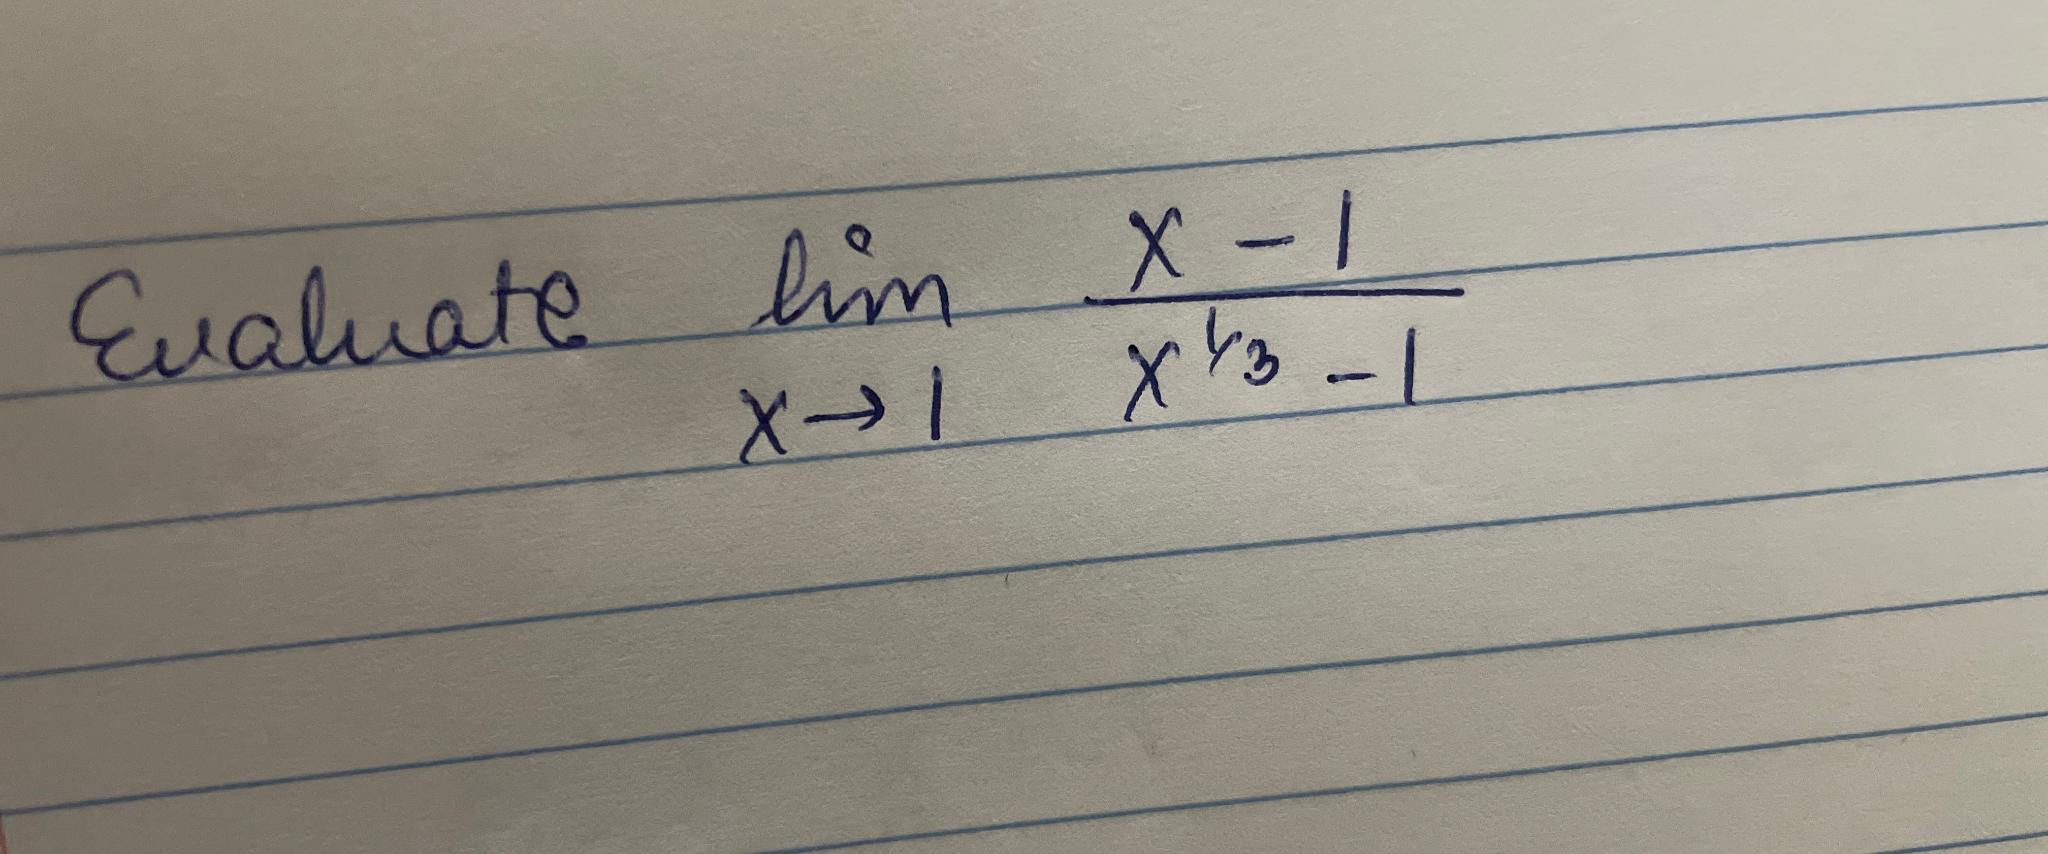 Evaluate lim x - 1
x→1 x^1/3 - 1